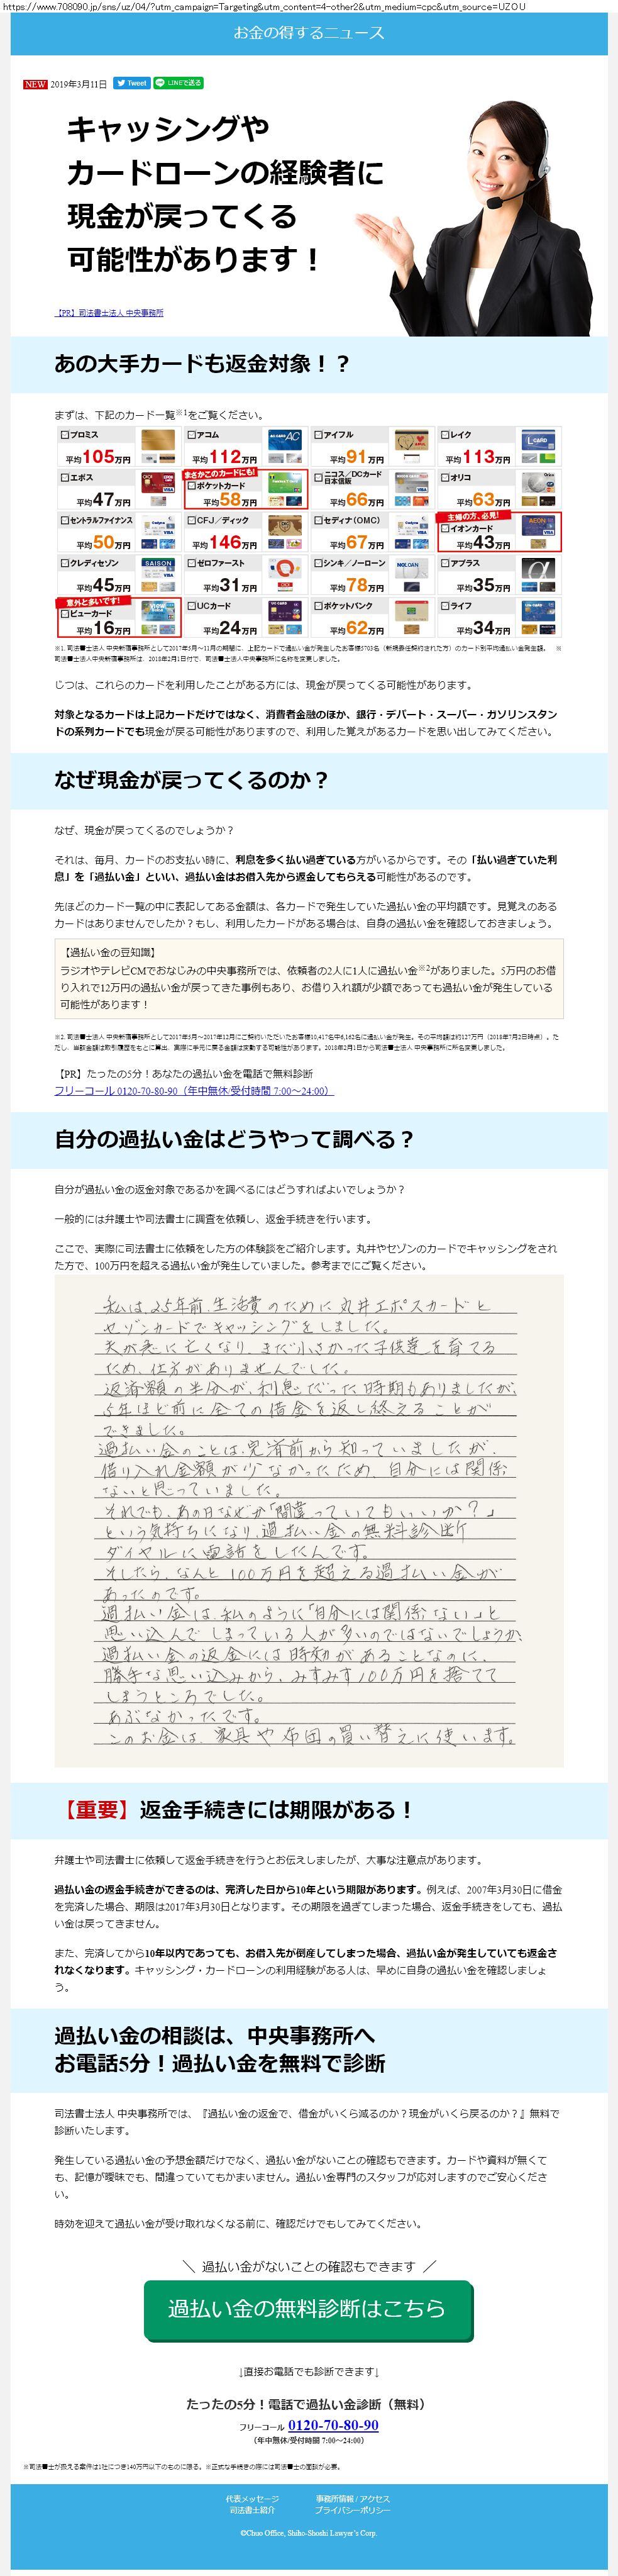 https://www.708090.jp/sns/uz/04/?utm_campaign=Targeting&utm_content=4-other2&utm_medium=cpc&utm_source=UZOU
お金の得するニュース
NEW 2019年3月11日 Tweet LINEで送る
キャッシングや
カードローンの経験者に
現金が戻ってくる
可能性があります！
【PR】司法書士法人 中央事務所
あの大手カードも返金対象！？
まずは、下記のカード一覧※1をご覧ください。
プロミス 平均105万円
アコム 平均112万円
アイフル 平均91万円
レイク 平均113万円
エポス 平均47万円
まさかこのカードにも!
ポケットカード 平均58万円
ニコス／DCカード 日本信販 平均66万円
オリコ 平均63万円
セントラルファイナンス 平均50万円
CFJ／ディック 平均146万円
セディナ（OMC） 平均67万円
主婦の方、必見!
イオンカード 平均43万円
クレディセゾン 平均45万円
ゼロファースト 平均31万円
シンキ／ノーローン 平均78万円
アプラス 平均35万円
意外と多いです!
ビューカード 平均16万円
UCカード 平均24万円
ポケットバンク 平均62万円
ライフ 平均34万円
※1. 司法■士法人 中央新宿事務所として2017年5月～11月の期間に、上記カードで過払い金が発生したお客様5703名（新規委任契約された方）のカード別平均過払い金発生額。 ※
司法■士法人中央新宿事務所は、2018年2月1日付で、司法■士法人中央事務所に名称を変更しました。
じつは、これらのカードを利用したことがある方には、現金が戻ってくる可能性があります。
対象となるカードは上記カードだけではなく、消費者金融のほか、銀行・デパート・スーパー・ガソリンスタン
ドの系列カードでも現金が戻る可能性がありますので、利用した覚えがあるカードを思い出してみてください。
なぜ現金が戻ってくるのか？
なぜ、現金が戻ってくるのでしょうか？
それは、毎月、カードのお支払い時に、利息を多く払い過ぎている方がいるからです。その「払い過ぎていた利
息」を「過払い金」といい、過払い金はお借入先から返金してもらえる可能性があるのです。
先ほどのカード一覧の中に表記してある金額は、各カードで発生していた過払い金の平均額です。見覚えのある
カードはありませんでしたか？もし、利用したカードがある場合は、自身の過払い金を確認しておきましょう。
【過払い金の豆知識】
ラジオやテレビCMでおなじみの中央事務所では、依頼者の2人に1人に過払い金※2がありました。5万円のお借
り入れで12万円の過払い金が戻ってきた事例もあり、お借り入れ額が少額であっても過払い金が発生している
可能性があります！
※2. 司法■士法人 中央新宿事務所として2017年5月～2017年12月にご契約いただいたお客様10,417名中6,162名に過払い金が発生。その平均額は約127万円（2018年7月2日時点）。た
だし、当該金額は取引履歴をもとに算出、実際に手元に戻る金額は変動する可能性があります。2018年2月1日から司法■士法人 中央事務所に所名変更しました。
【PR】たったの5分！あなたの過払い金を電話で無料診断
フリーコール 0120-70-80-90（年中無休/受付時間 7:00～24:00）
自分の過払い金はどうやって調べる？
自分が過払い金の返金対象であるかを調べるにはどうすればよいでしょうか？
一般的には弁護士や司法書士に調査を依頼し、返金手続きを行います。
ここで、実際に司法書士に依頼をした方の体験談をご紹介します。丸井やセゾンのカードでキャッシングをされ
た方で、100万円を超える過払い金が発生していました。参考までにご覧ください。
私は、25年前、生活費のために丸井エポスカードと
セゾンカードでキャッシングをしました。
夫が急に亡くなり、まだ小さかった子供達を育てる
ため、仕方がありませんでした。
返済額の半分が、利息だった時期もありましたが、
5年ほど前に全ての借金を返し終えることが
できました。
過払い金のことは、完済前から知っていましたが、
借り入れ金額が少なかったため、自分には関係
ないと思っていました。
それでも、あの日なぜか「間違っていてもいいか？」
という気持ちになり、過払い金の無料診断
ダイヤルに電話をしたんです。
そしたら、なんと100万円を超える過払い金が
あったのです。
過払い金は、私のように「自分には関係ない」と
思い込んでしまっている人が多いのではないでしょうか。
過払い金の返金には時効があることなのに、
勝手な思い込みから、みすみす100万円を捨てて
しまうところでした。
あぶなかったです。
このお金は、家具や布団の買い替えに使います。
【重要】返金手続きには期限がある！
弁護士や司法書士に依頼して返金手続きを行うとお伝えしましたが、大事な注意点があります。
過払い金の返金手続きができるのは、完済した日から10年という期限があります。例えば、2007年3月30日に借金
を完済した場合、期限は2017年3月30日となります。その期限を過ぎてしまった場合、返金手続きをしても、過払
い金は戻ってきません。
また、完済してから10年以内であっても、お借入先が倒産してしまった場合、過払い金が発生していても返金さ
れなくなります。キャッシング・カードローンの利用経験がある人は、早めに自身の過払い金を確認しましょ
う。
過払い金の相談は、中央事務所へ
お電話5分！過払い金を無料で診断
司法書士法人 中央事務所では、『過払い金の返金で、借金がいくら減るのか？現金がいくら戻るのか？』無料で
診断いたします。
発生している過払い金の予想金額だけでなく、過払い金がないことの確認もできます。カードや資料が無くて
も、記憶が曖昧でも、間違っていてもかまいません。過払い金専門のスタッフが応対しますのでご安心くださ
い。
時効を迎えて過払い金が受け取れなくなる前に、確認だけでもしてみてください。
＼ 過払い金がないことの確認もできます ／
過払い金の無料診断はこちら
↓直接お電話でも診断できます↓
たったの5分！電話で過払い金診断（無料）
フリーコール 0120-70-80-90
（年中無休/受付時間 7:00～24:00）
※司法■士が扱える案件は1社につき140万円以下のものに限る。※正式な手続きの際には司法■士の面談が必要。
代表メッセージ 事務所情報 / アクセス
司法書士紹介 プライバシーポリシー
©Chuo Office, Shiho-Shoshi Lawyer's Corp.